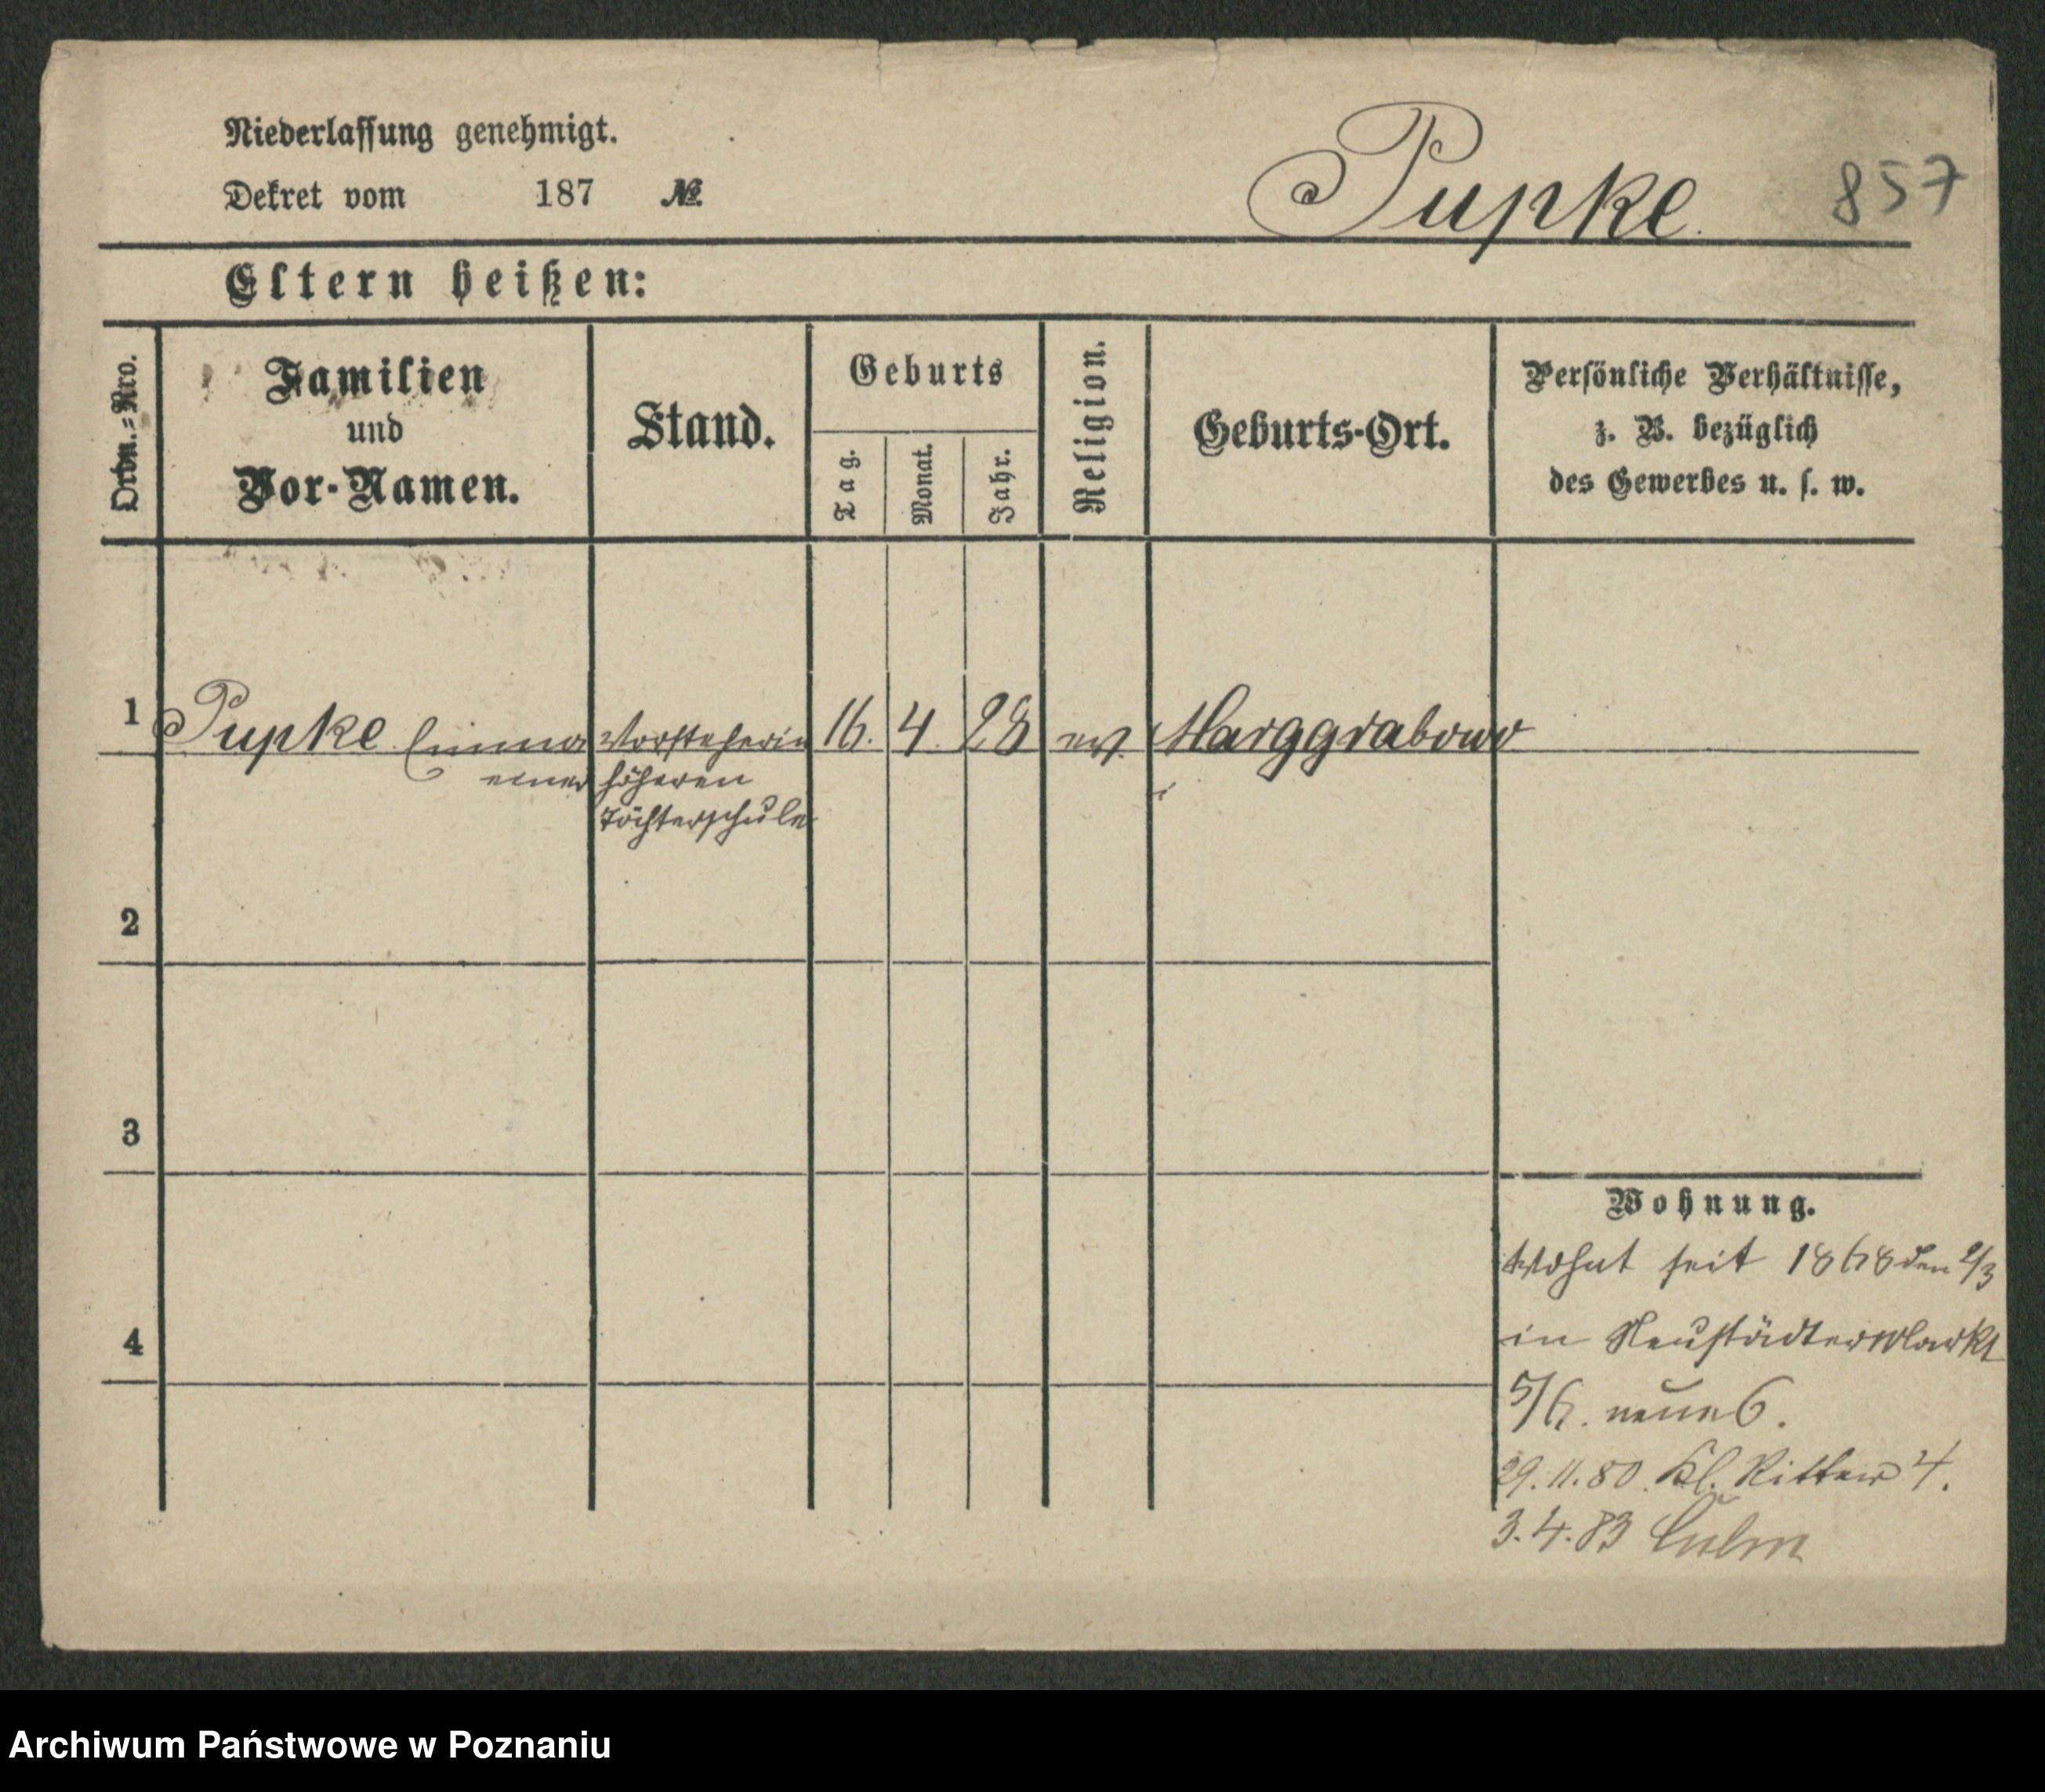 Niederlassung genehmigt.
Dekret vom 187 №
Pupke.
857
Eltern heißen:
Ordn.-Nro.
Familien
und
Vor-Namen.
Stand.
Geburts
Tag.
Monat.
Jahr.
Religion.
Geburts-Ort.
Persönliche Verhältnisse,
z. B. bezüglich
des Gewerbes u. s. w.
1 Pupke Emma Vorsteherin 16. 4 28 ev. Marggrabowo
einer höheren
Töchterschule
2
3
4
Wohnung.
Wohnt seit 1868 den 2/3
in Neustädter Markt
5/6. neue 6.
29.11.80. Kl. Ritterstr 4.
3.4.83 Culm
Archiwum Państwowe w Poznaniu